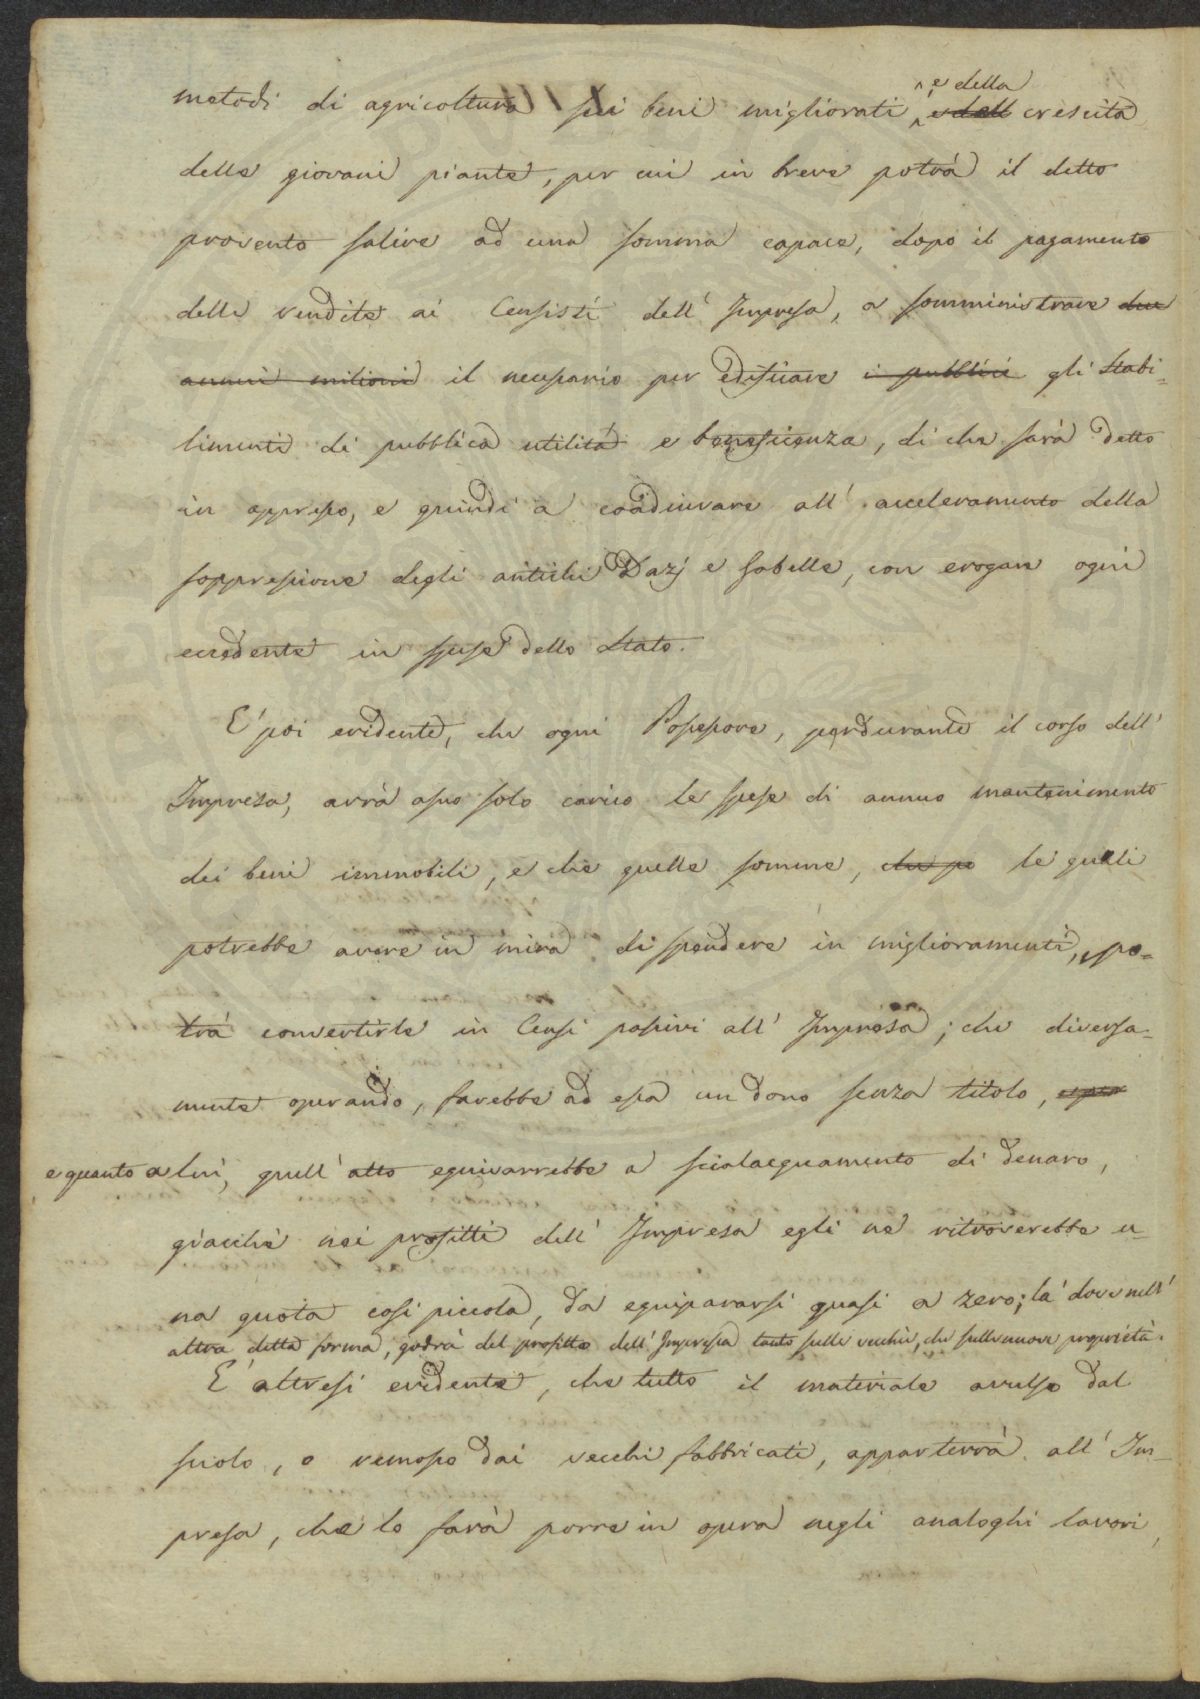 metodi di agricoltura sui beni migliorati, e della crescita
delle giovani piante, per cui in breve potrà il detto
provento salire ad una somma capace, dopo il pagamento
delle rendite ai Censisti dell' Impresa, a somministrare due
annui milioni il necessario per edificare i pubblici gli Stabi-
limenti di pubblica utilità e beneficenza, di che sarà detto
in appresso, e quindi a coadiuvare all' acceleramento della
soppressione degli antichi Dazj e Gabelle, con erogare ogni
eccedente in spese dello Stato.
E' poi evidente, che ogni Possessore, perdurante il corso dell'
Impresa, avrà a suo solo carico le spese di annuo mantenimento
dei beni immobili, e che quelle somme, che po le quali
potrebbe avere in mira di spendere in miglioramenti, po-
trà convertirle in Censi passivi all' Impresa; che diversa-
mente operando, farebbe ad essa un dono senza titolo,
e quanto a lui, quell' atto equivarrebbe a scialacquamento di denaro,
giacchè nei profitti dell' Impresa egli ne ritroverebbe u-
na quota così piccola, da equipararsi quasi a zero; là dove nell'
altra detta forma, godrà del profitto dell' Impresa tanto sulle vecchie, che sulle nuove proprietà.
E' altresì evidente, che tutto il materiale avulso dal
suolo, o remosso dai vecchi fabbricati, apparterrà all' Im-
presa, che lo farà porre in opera negli analoghi lavori,